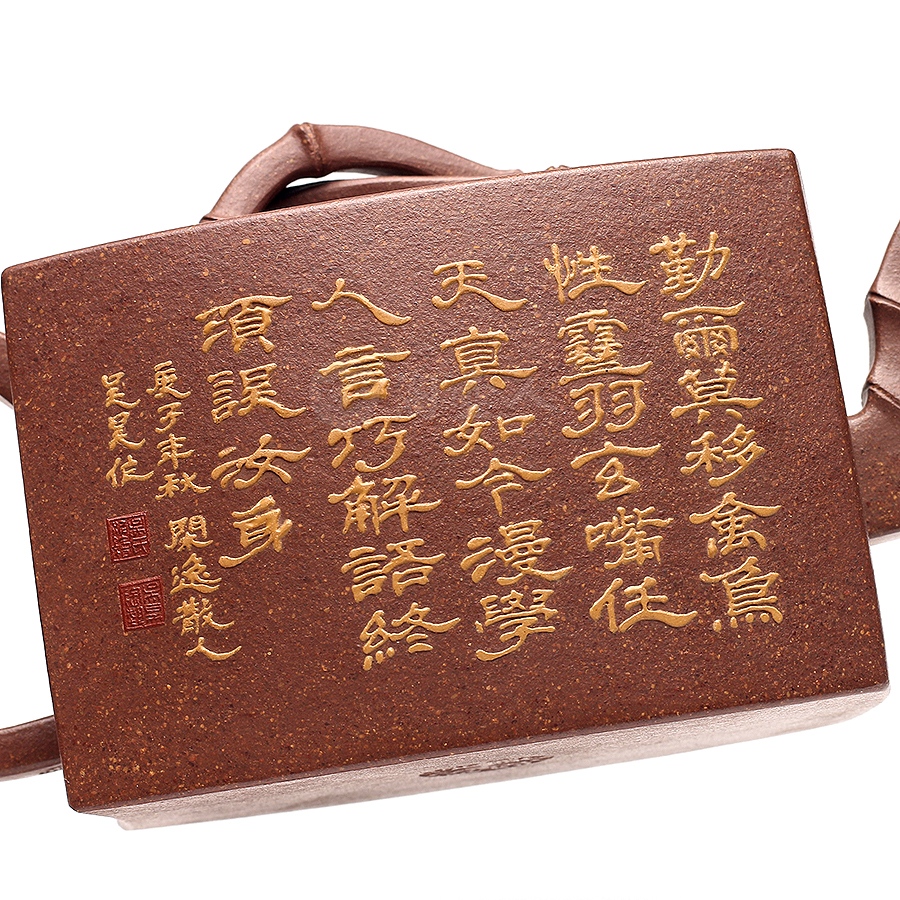 勤爾莫移禽鳥
性靈羽玄嘴任
天真如今漫學
人言巧解語終
須誤汝身
庚子年秋閑逸散人
吴昊作